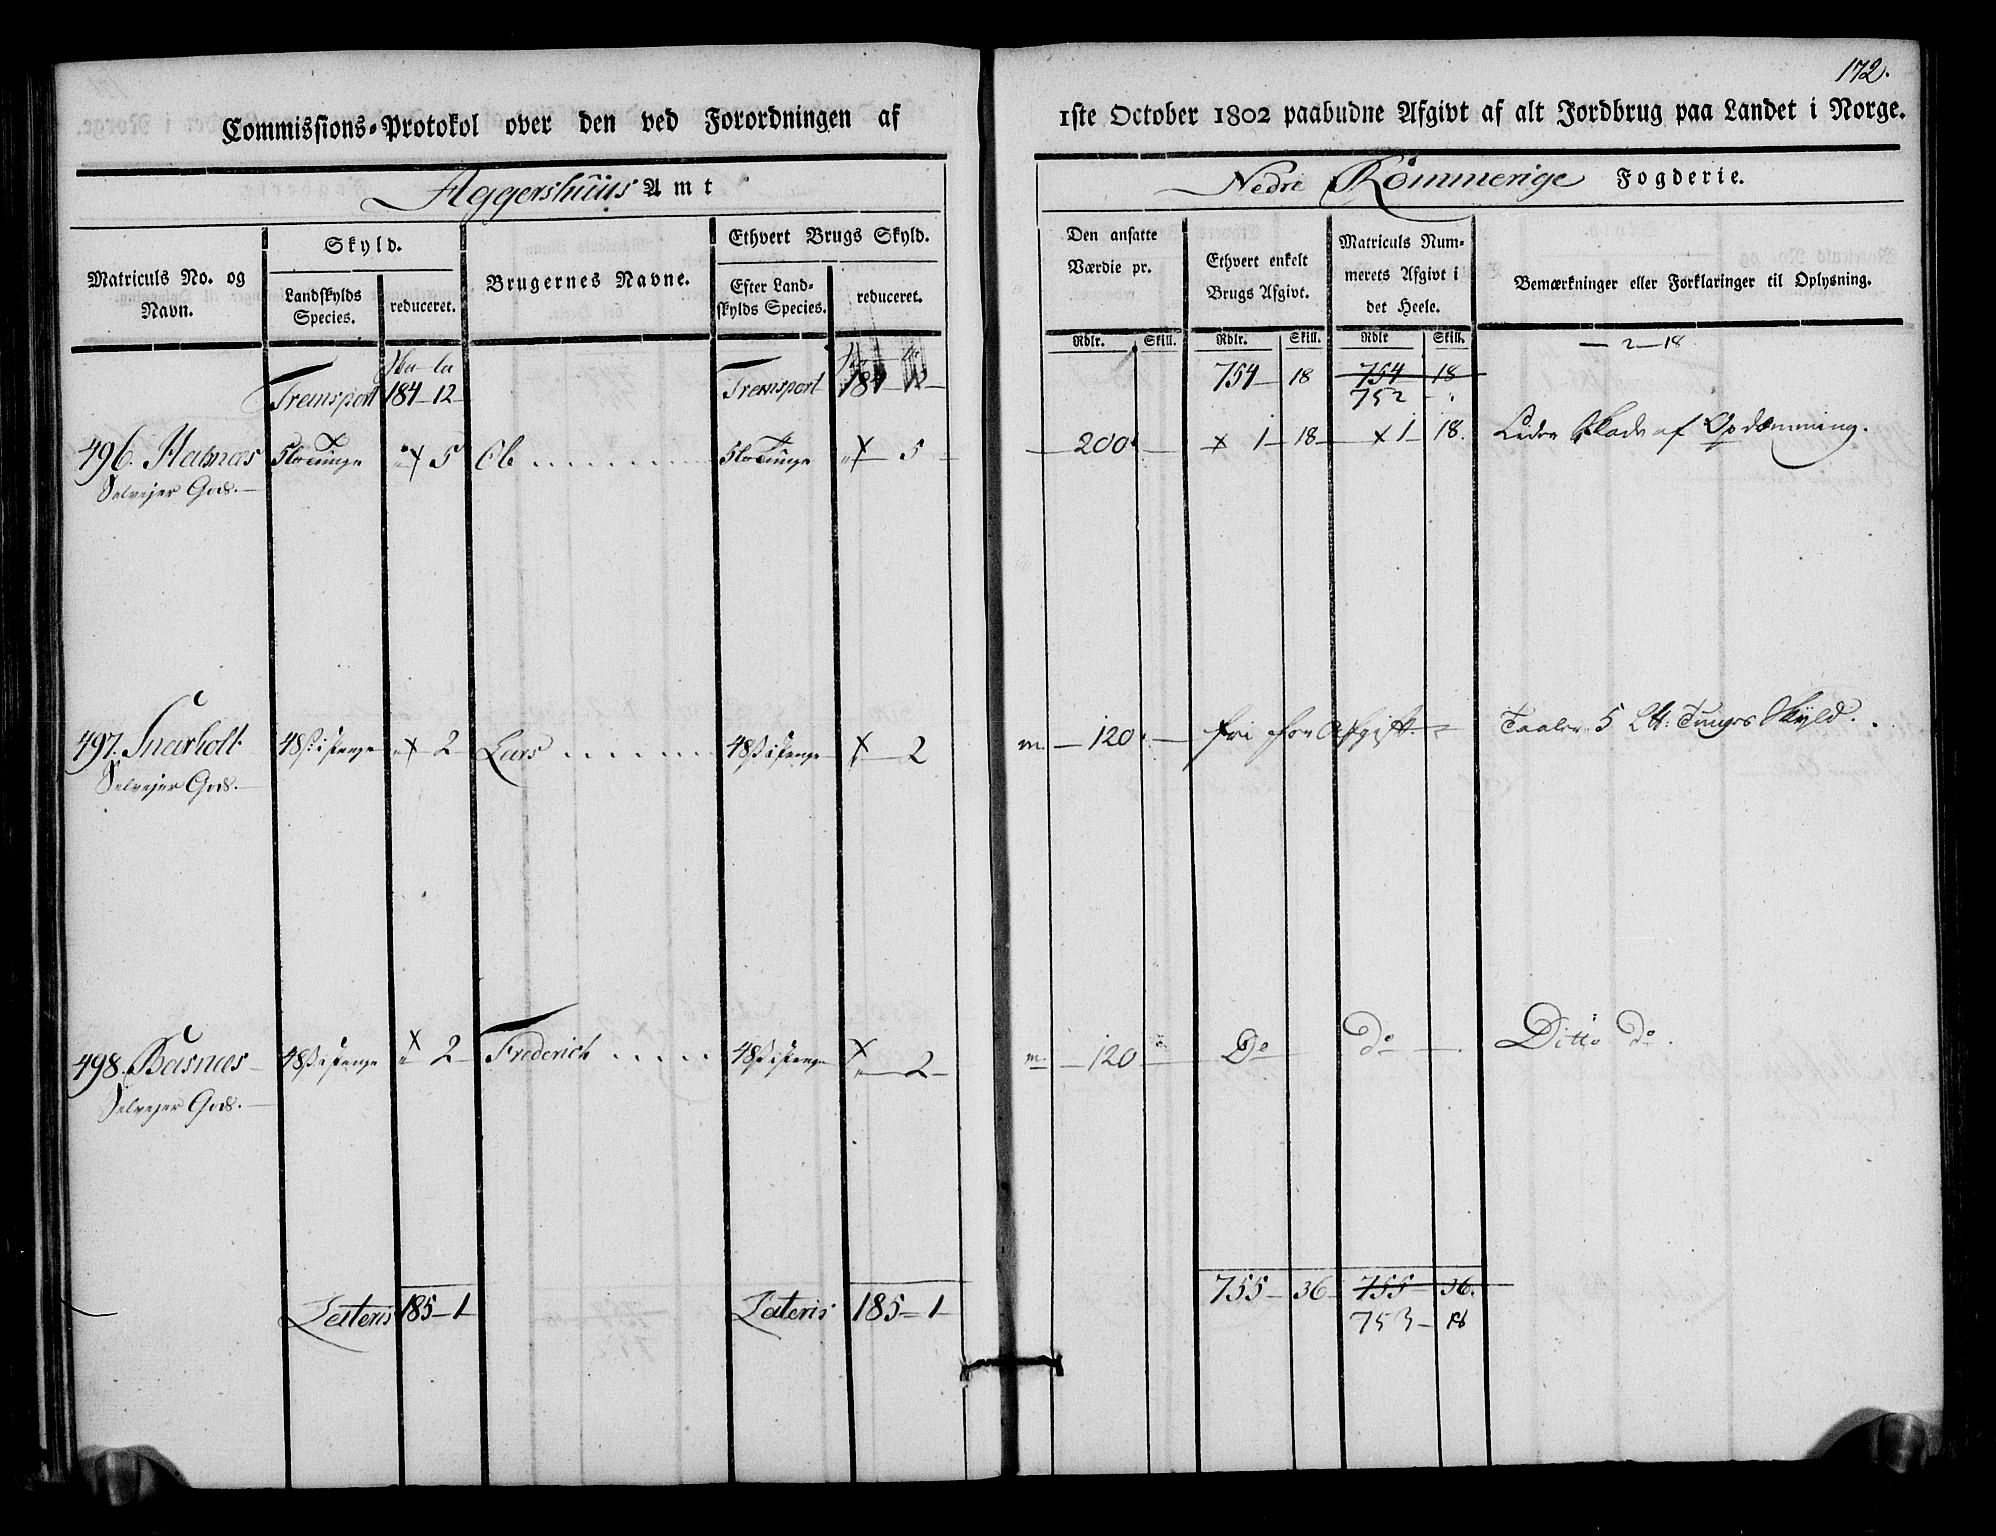 172.
Commissions-Protokol over den ved Forordningen af 1ste October 1802 paabudne Afgivt af alt Jordbrug paa Landet i Norge.
Aggershuus Amt
Nedre Rommerige Fogderie.
Matriculs No. og Navn.
Skyld.
Landskylds Species.
reduceret.
Brugernes Navne.
Ethvert Brugs Skyld.
Efter Landskylds Species.
reduceret.
Den ansatte Værdie pr.
Rdlr. Skill.
Ethvert enkelt Brugs Afgivt.
Rdlr. Skill.
Matriculs Nummerets Afgivt i det Heele.
Rdlr Skill.
Bemærkninger eller Forklaringer til Oplysning.
— 2 — 18
Transport 184 — 12 Transport 754 — 18 754 — 18
752
496. Halnæs 5 Tunge 5 Ole 5 Tunge 5 200 1 — 18 1 — 18. Lider Skade af Opdæmning.
Selvejer Gods.
497. Snarholt 48 ß i Penge 2 Lars 48 ß i Penge 2 120 fri for Afgift Taaler 5 Tunges Skyld.
Selvejer Gods.
498. Basnæs 48 ß i Penge 2 Frederich 48 ß i Penge 2 120 Do do Ditto do.
Selvejer Gods.
Lateris 185 — 1 Lateris 185 — 1 755 — 36 755 — 36.
753 — 18